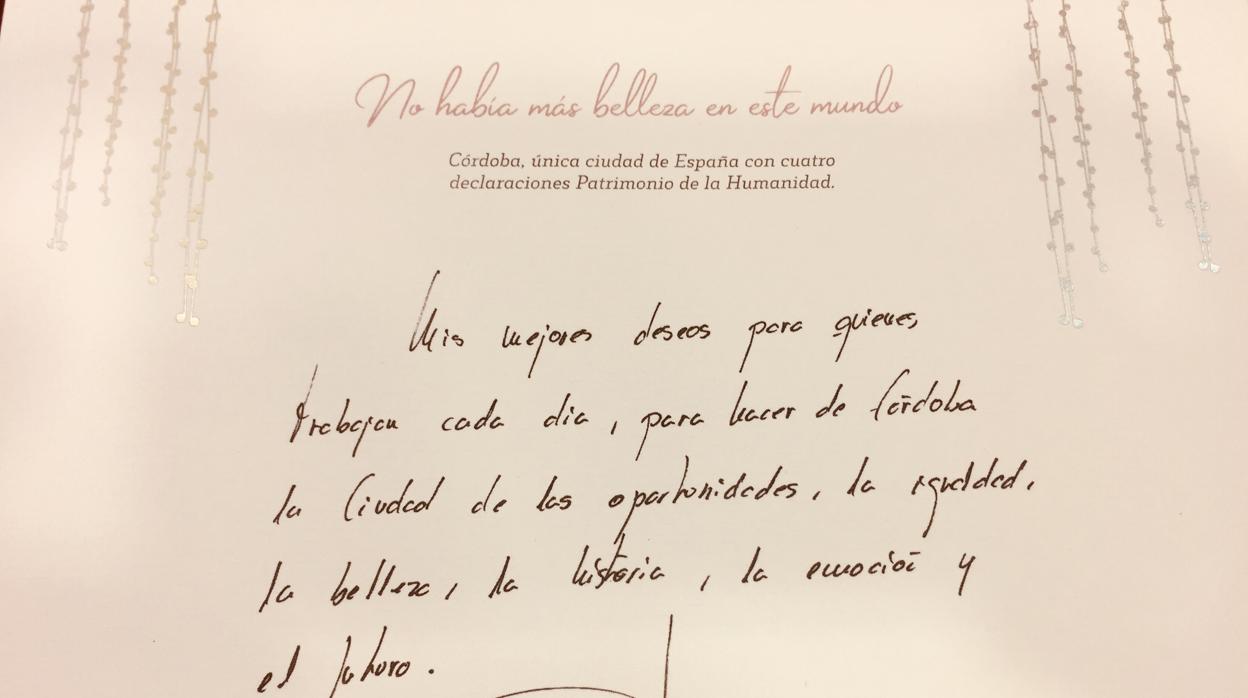 No había más belleza en este mundo
Córdoba, única ciudad de España con cuatro
declaraciones Patrimonio de la Humanidad.
Mis mejores deseos para quienes,
trabajan cada día, para hacer de Córdoba
la Ciudad de las oportunidades, la igualdad,
la belleza, la historia, la emoción y
el futuro.